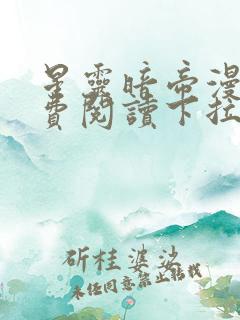 星靈暗帝漫
費閱讀下拉
斫桂婆娑
未经同意禁止转载